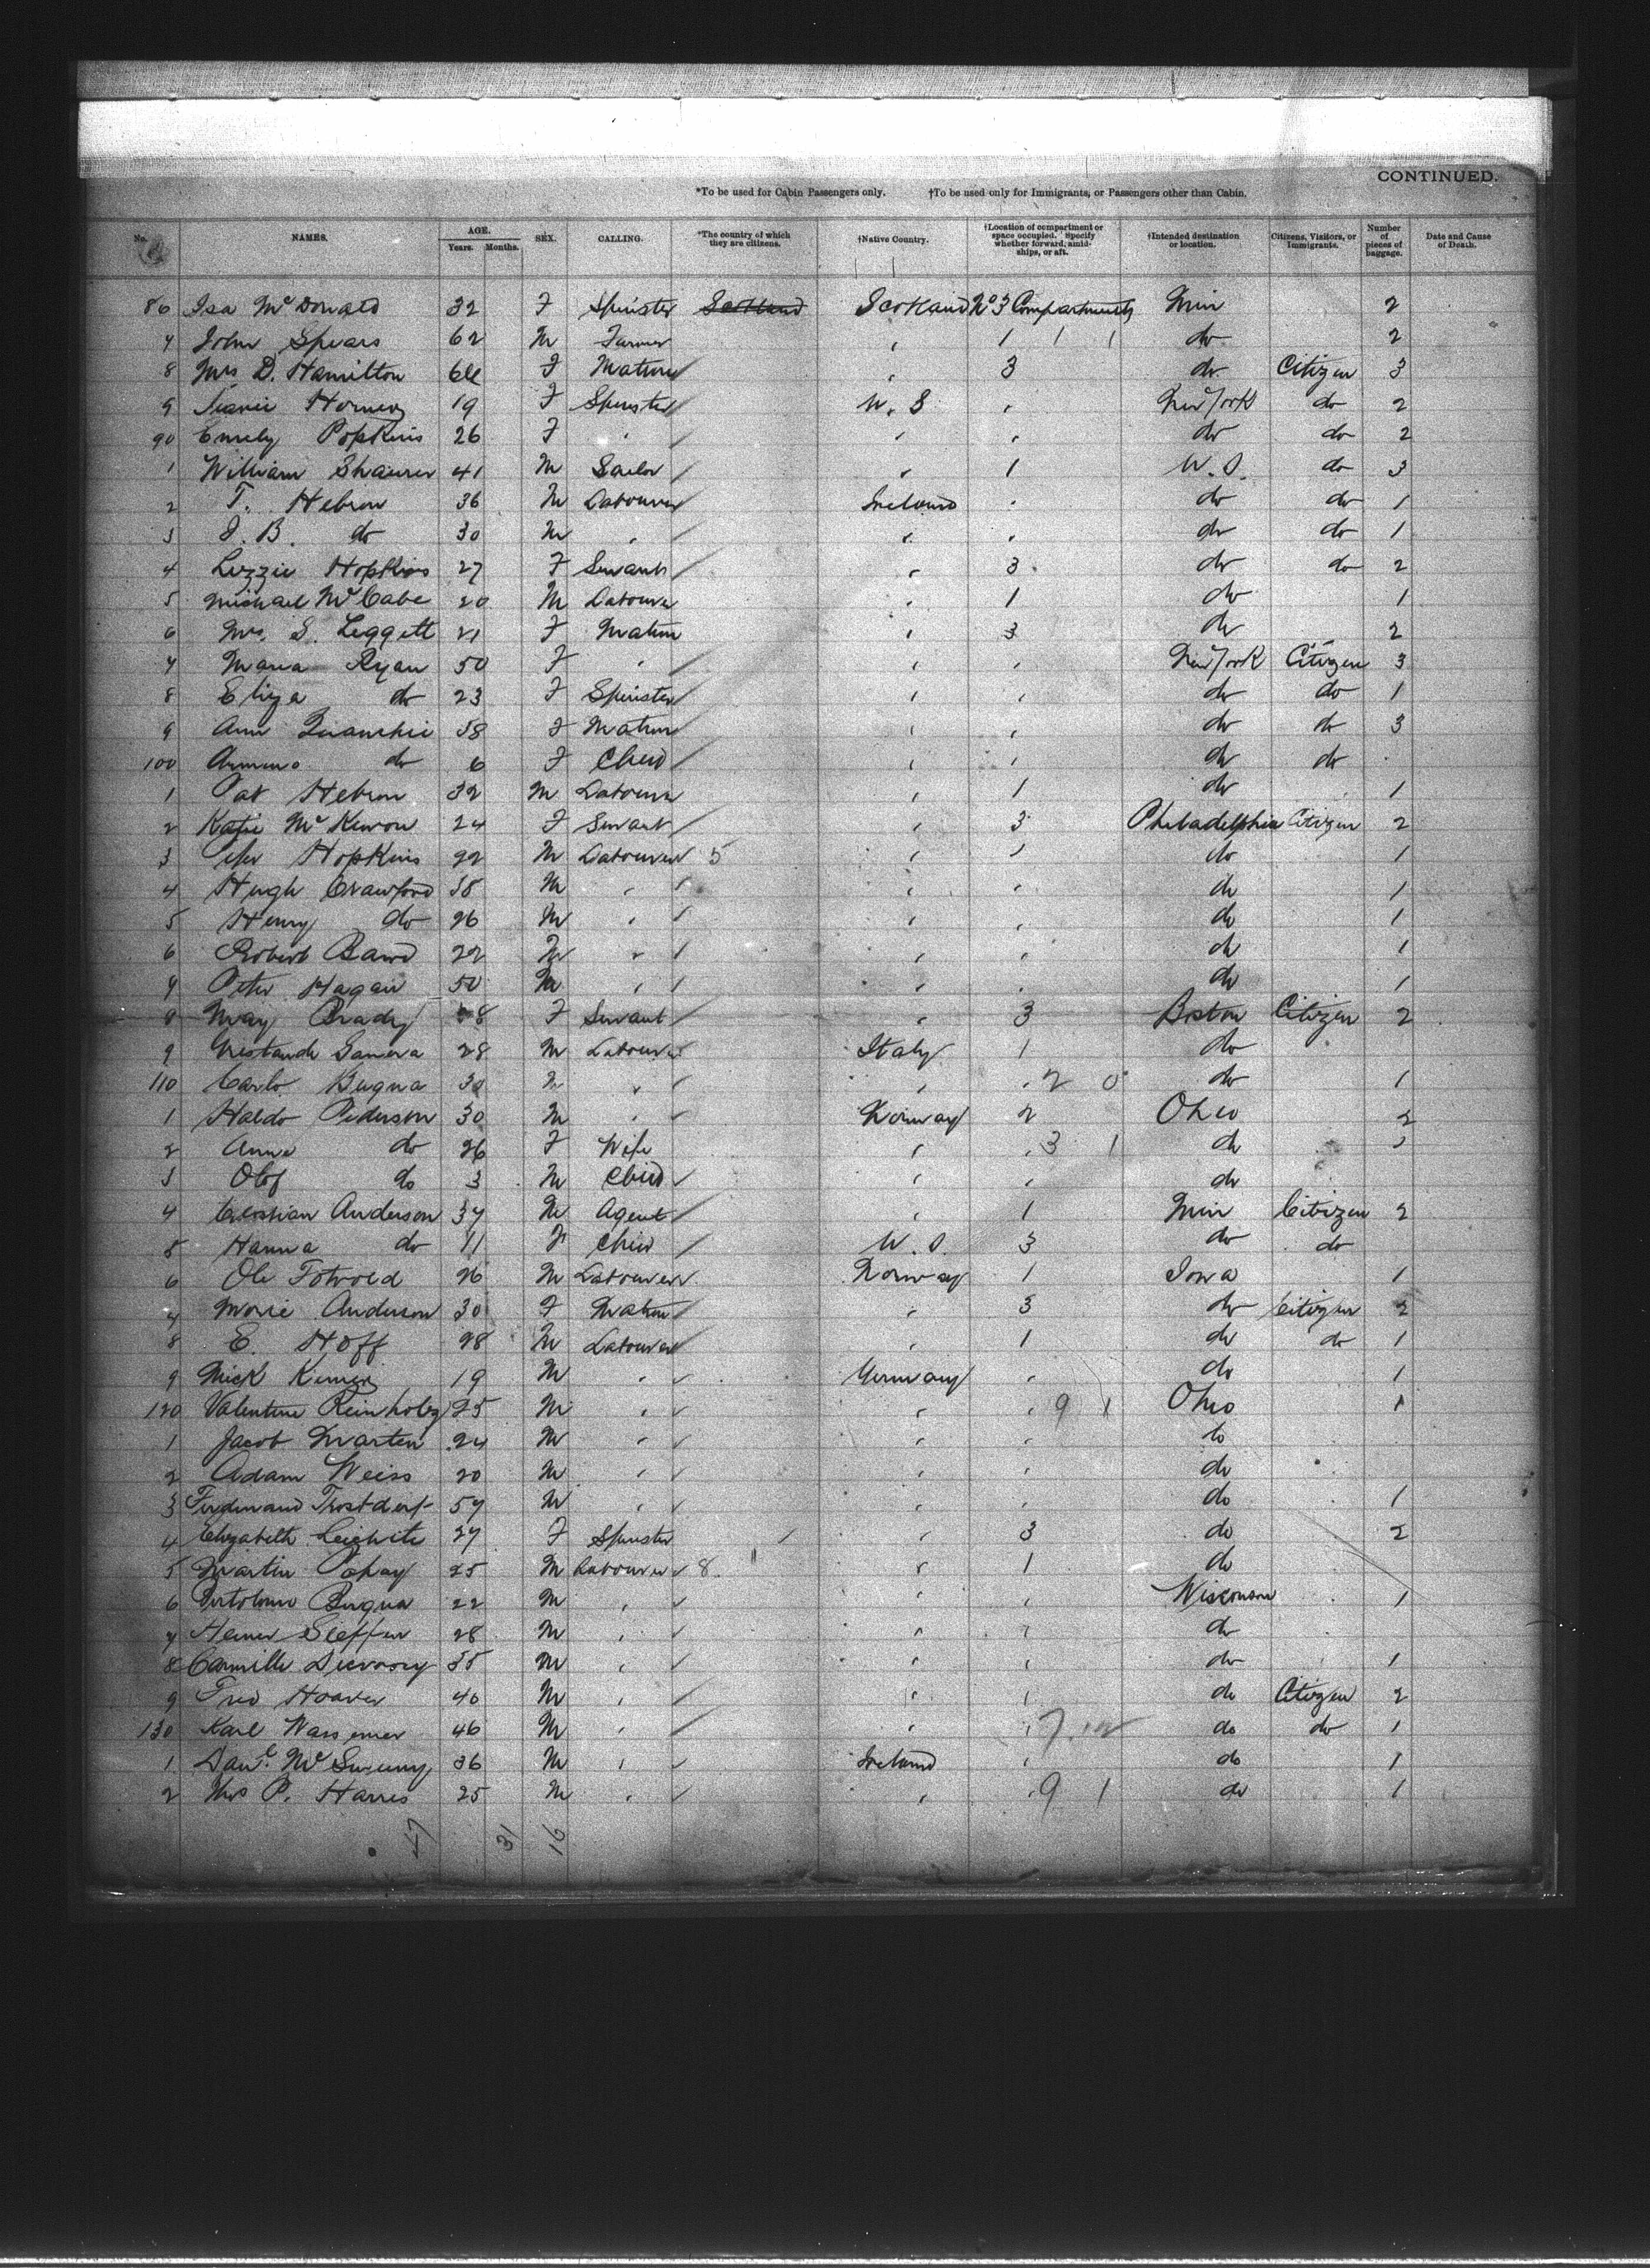 CONTINUED.
*To be used for Cabin Passengers only. †To be used only for Immigrants, or Passengers other than Cabin.
No. NAMES. AGE. Years. Months. SEX. CALLING. *The country of which they are citizens. †Native Country. †Location of compartment or space occupied. Specify whether forward, amidships, or aft. †Intended destination or location. Citizens, Visitors, or Immigrants. Number of pieces of baggage. Date and Cause of Death.
86 Isa McDonald 32 F Spinster Scotland Scotland No 3 Compartments Min 2
7 John Spears 62 M Farmer " 1 1 1 do 2
8 Mrs D. Hamilton F Matron " 3 do Citizen 3
9 19 F Spinster U.S " New York do 2
90 Emely Popkins 26 F " " " do do 2
1 William 41 M Sailor " 1 U.S. do 3
2 T. Hebron 36 M Labourer Ireland " do do 1
3 J. B. do 30 M " " " do do 1
4 Lizzie Hopkins 27 F Servant " 3 do do 2
5 Michael McCabe 20 M Labourer " 1 do 1
6 Mrs. S. Leggett 21 F Matron " 3 do 2
7 Maria Ryan 50 F " " " New York Citizen 3
8 Eliza do 23 F Spinster " " do do 1
9 Ann 58 F Matron " " do do 3
100 do 6 F Child " " do do
1 Pat Hebron 32 M Labourer " 1 do 1
2 Katie McKewon 24 F Servant " 3 Philadelphia Citizen 2
3 Peter Hopkins 22 M Labourer 5 " " do 1
4 Hugh Crawford 58 M " " " do 1
5 Henry do 26 M " " " do 1
6 Robert Baird 22 M " " " do 1
7 Peter Hagan 50 M " " " do 1
8 May Brady F Servant " 3 Boston Citizen 2
9 28 M Labourer Italy 1 do
110 Carlo Bugna 30 M " " " 2 0 do 1
1 Haldo Pederson 30 M " Norway 2 Ohio 2
2 Anna do 26 F Wife " " 3 1 do "
3 Olof do 3 M Child " " do
4 Anderson 37 M Agent " 1 Min Citizen 2
5 Hanna do 11 F Child U.S. 3 do do
6 Ole Fotvold 26 M Labourer Norway 1 Iowa 1
7 Marie Anderson 30 F Matron " 3 do Citizen 2
8 E. Hoff 28 M Labourer " 1 do do 1
9 Mick 19 M " Germany " do 1
120 Valentine Reinholz 25 M " " " 9 1 Ohio 1
1 Jacob Marten 24 M " " " do
2 Adam Weiss 20 M " " " do
3 Ferdinand Trostdorf 57 M " " " do 1
4 Elizabeth 27 F Spinster " 3 do 2
5 Martin 25 M Labourer 8 " 1 do
6 Bugna 22 M " " " Wisconsin 1
7 28 M " " " do
8 Camille 55 M " " " do 1
9 Fred Hoover 40 M " " " do Citizen 2
130 Karl Wassemer 46 M " " " 7 do do 1
1 Danl. McSweeny 36 M " Ireland " do 1
2 P. Harris 25 M " " " 9 1 do 1
47 31 16